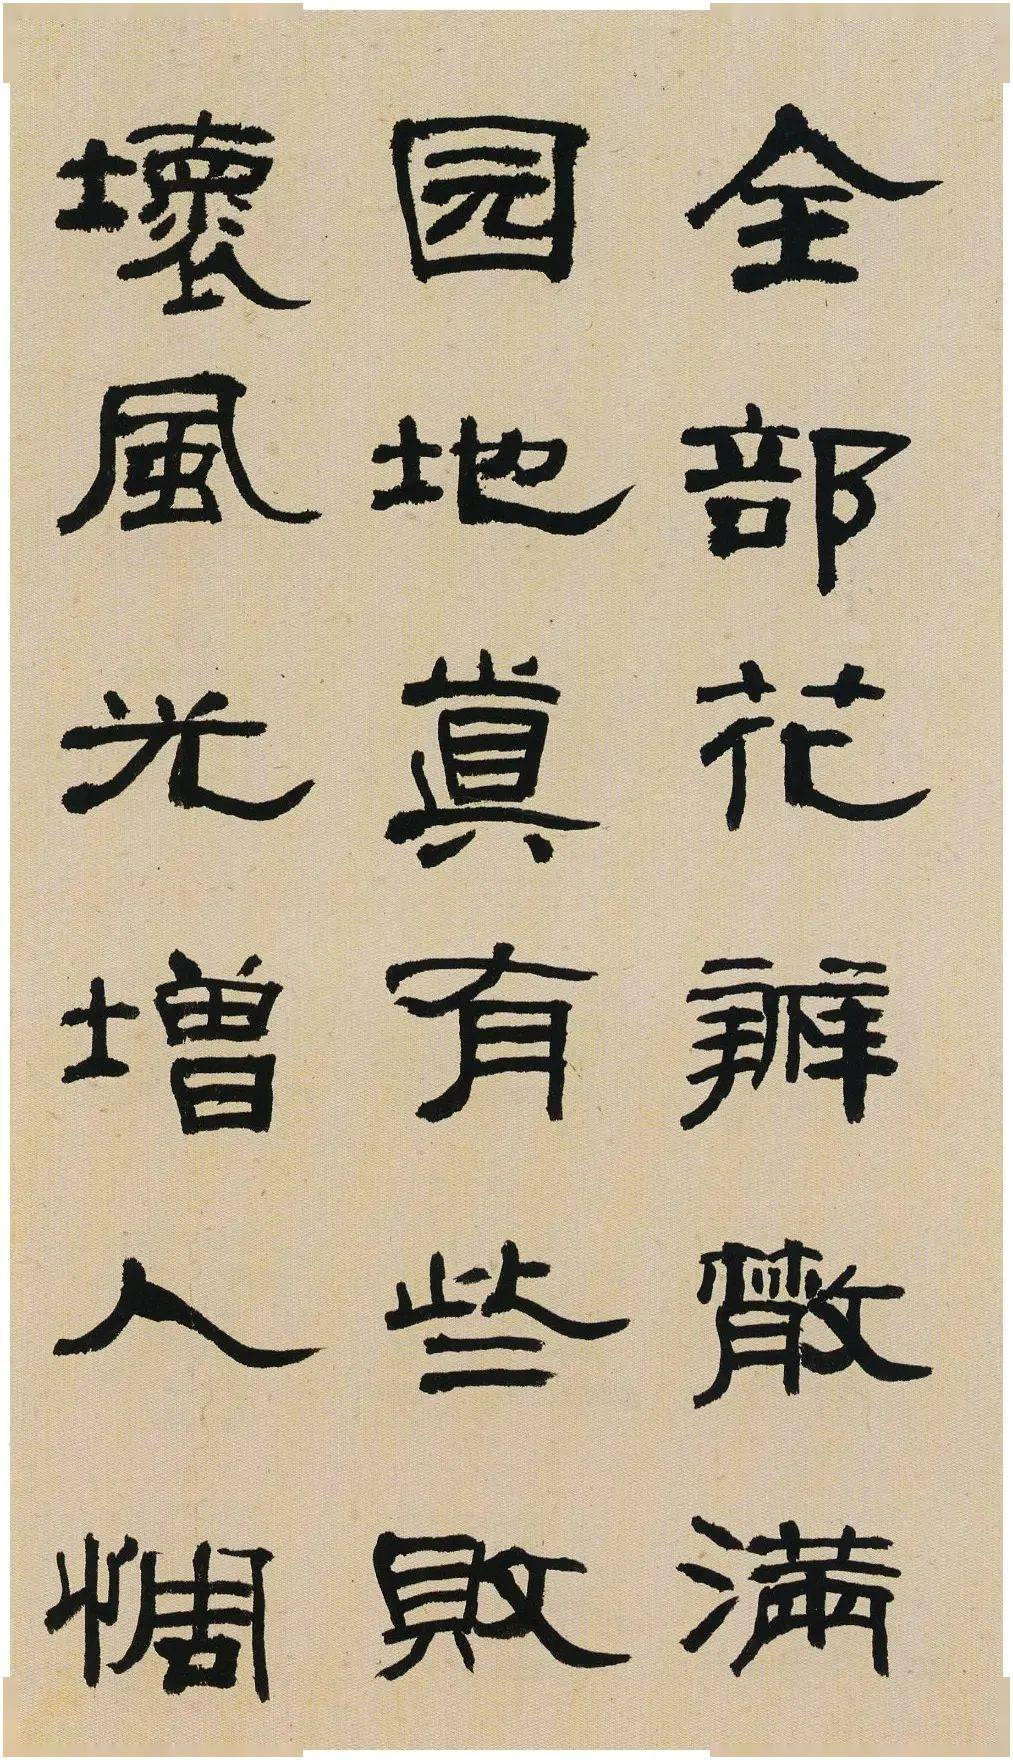 全部花瓣散满
园地真有些败
壞風光增人惆